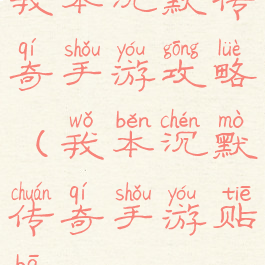 我本沉默传
qí shǒu yóu gōng lüè
奇手游攻略
wǒ běn chén mò
（我本沉默
chuán qí shǒu yóu tiē
传奇手游贴
bā